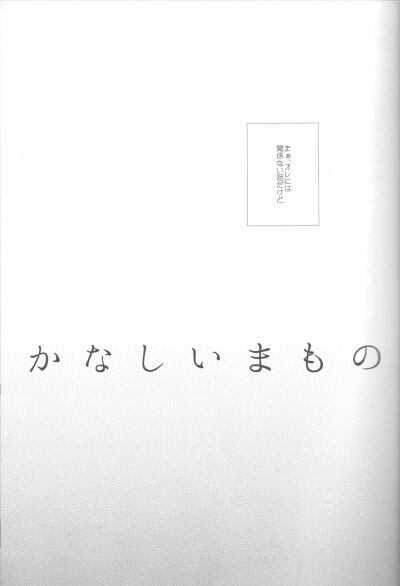 まぁ、オレには
関係ない話だけど
かなしいまもの